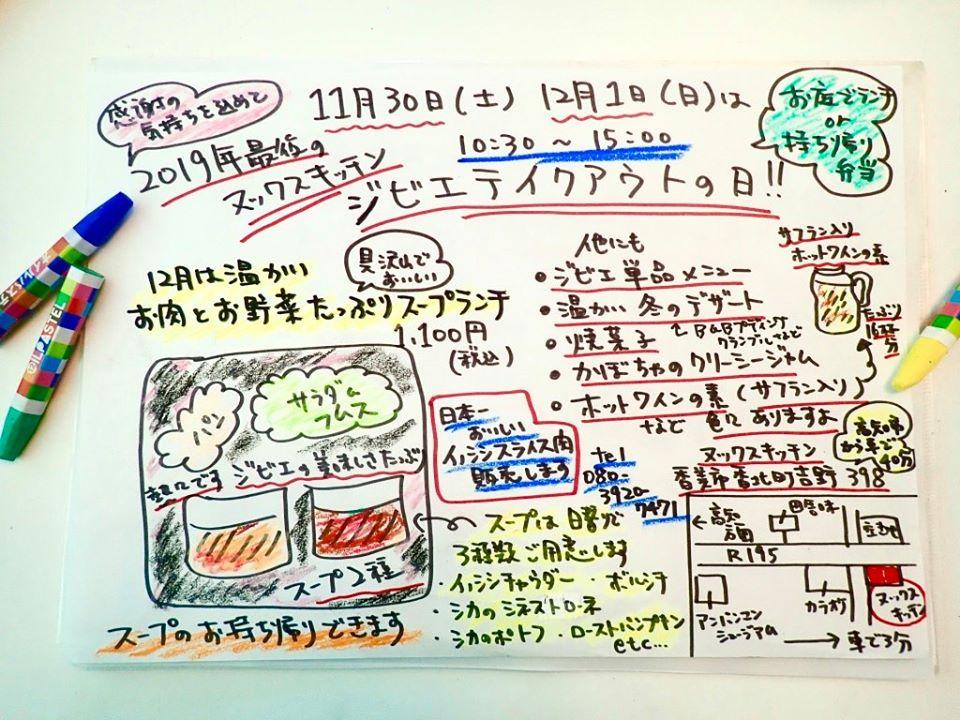 感謝の
気持ちを込めて
11月30日(土) 12月1日(日)は
10:30 ~ 15:00
お店でランチ
or
持ち帰り
弁当
2019年最後の
ヌックスキッチン
ジビエテイクアウトの日!!
12月は温かい
お肉とお野菜たっぷりスープランチ
具沢山で
おいしい
1,100円
(税込)
パン
サラダ
フムス
熱々です
ジビエの美味しさたっぷ
スープ2種
スープのお持ち帰りできます
他にも
・ジビエ単品メニュー
・温かい冬のデザート
B&Bプディング
クランブルなど
・焼菓子
・かぼちゃのクリーミージャム
・ホットワインの素(サフラン入り)
など 色々ありますよ
サフラン入り
ホットワインの素
たっぷり
16杯
分
日本一
おいしい
イノシシスライス肉
販売します
tel
080-
3920-
7471
スープは日替で
3種類ご用意します
・イノシシチャウダー ・ボルシチ
・シカのミネストローネ
・シカのポトフ ・ローストパンプキン
etc...
高知市
から車で
40分
ヌックスキッチン
香美市香北町吉野 398
←高知
方面
R195
アンパンマン
ミュージアム
カラオケ
ヌックス
キッチン
→ 車で3分